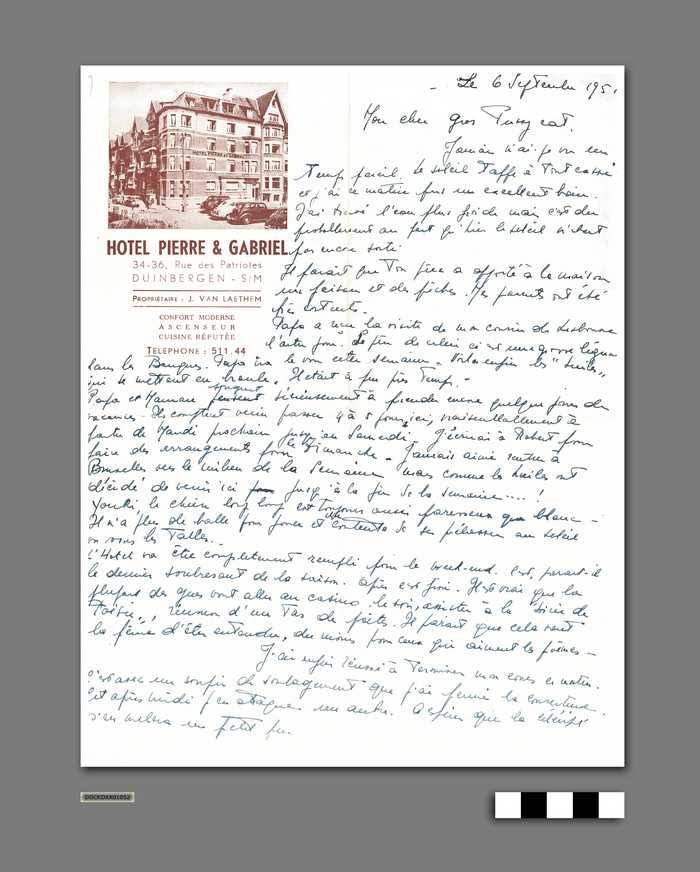 Le 6 Septembre 195
Mon cher gros Pussy cat.
Jamais n'ai-je vu un
temps pareil. Le soleil tappe à tout casser
et j'ai ce matin pris un excellent bain.
J'ai trouvé l'eau plus froide mais c'est dû
probablement au fait qu'hier le soleil n'était
pas encore sorti.
HOTEL PIERRE & GABRIEL
34-36, Rue des Patriotes
DUINBERGEN - S/M
PROPRIÉTAIRE : J. VAN LAETHEM
CONFORT MODERNE
ASCENSEUR
CUISINE RÉPUTÉE
TELEPHONE : 511.44
HOTEL PIERRE & GABRIEL
Il parait que ton père a apporté à la maison
un faisan et des pêches. Mes parents ont été
très contents.
Papa a eu la visite de mon cousin de Lisbonne
l'autre jour. Le père de celui ci est une grosse légume
dans les Banques. Papa ira le voir cette semaine. Voilà enfin les "
qui se mettent en branle. Il était à peu près temps.-
Papa et Maman songent sérieusement à prendre encore quelques jours de
vacances. Ils comptent venir passer 4 à 5 jours ici, vraisemblablement à
partir de Mardi prochain jusqu'au Samedi. J'écrirai à Robert pour
faire des arrangements pour le Dimanche. Jamais aimé rentrer à
Bruxelles vers le milieu de la Semaine mais comme les ont
décidé de venir ici jusqu'à la fin de la semaine.... !
Youki, le chien loup loup est toujours aussi paresseux que blanc -
Il n'a plus de balle pour jouer et se contente de se prélasser au soleil
ou sous les tables.
L'Hotel va être complètement rempli pour le week-end. C'est, parait-il
le dernier soubresaut de la saison. Après c'est fini. Il est vrai que la
plupart des gens vont aller au casino, le soir, assister à la "
Poésie", réunion d'un tas de poètes. Il parait que cela vaut
la peine d'être entendu, du moins pour ceux qui aiment les poèmes -
J'ai enfin réussi à terminer mon cours ce matin.
C'est avec un soupir de soulagement que j'ai fermé la couverture.
Cet après midi j'en attaque un autre. Espérons que la
s'en mêlera un petit peu.
DOCKDXX01052